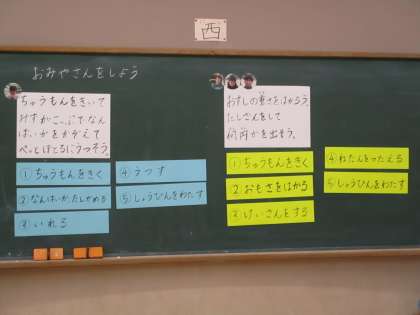 西
おみやさんをしよう
ちゅうもんをきいて
みずが こっぷで なん
ばいかをかぞえて
ぺっとぼとるにうつそう。
①ちゅうもんをきく
②なんばいか、たしかめる
③いれる
④うつす
⑤しょうひんをわたす
おすしの重さをはかろう。
たしざんをして
何円かを出そう。
①ちゅうもんをきく
②おもさをはかる
③けいさんをする
④ねだんをつたえる
⑤しょうひんをわたす